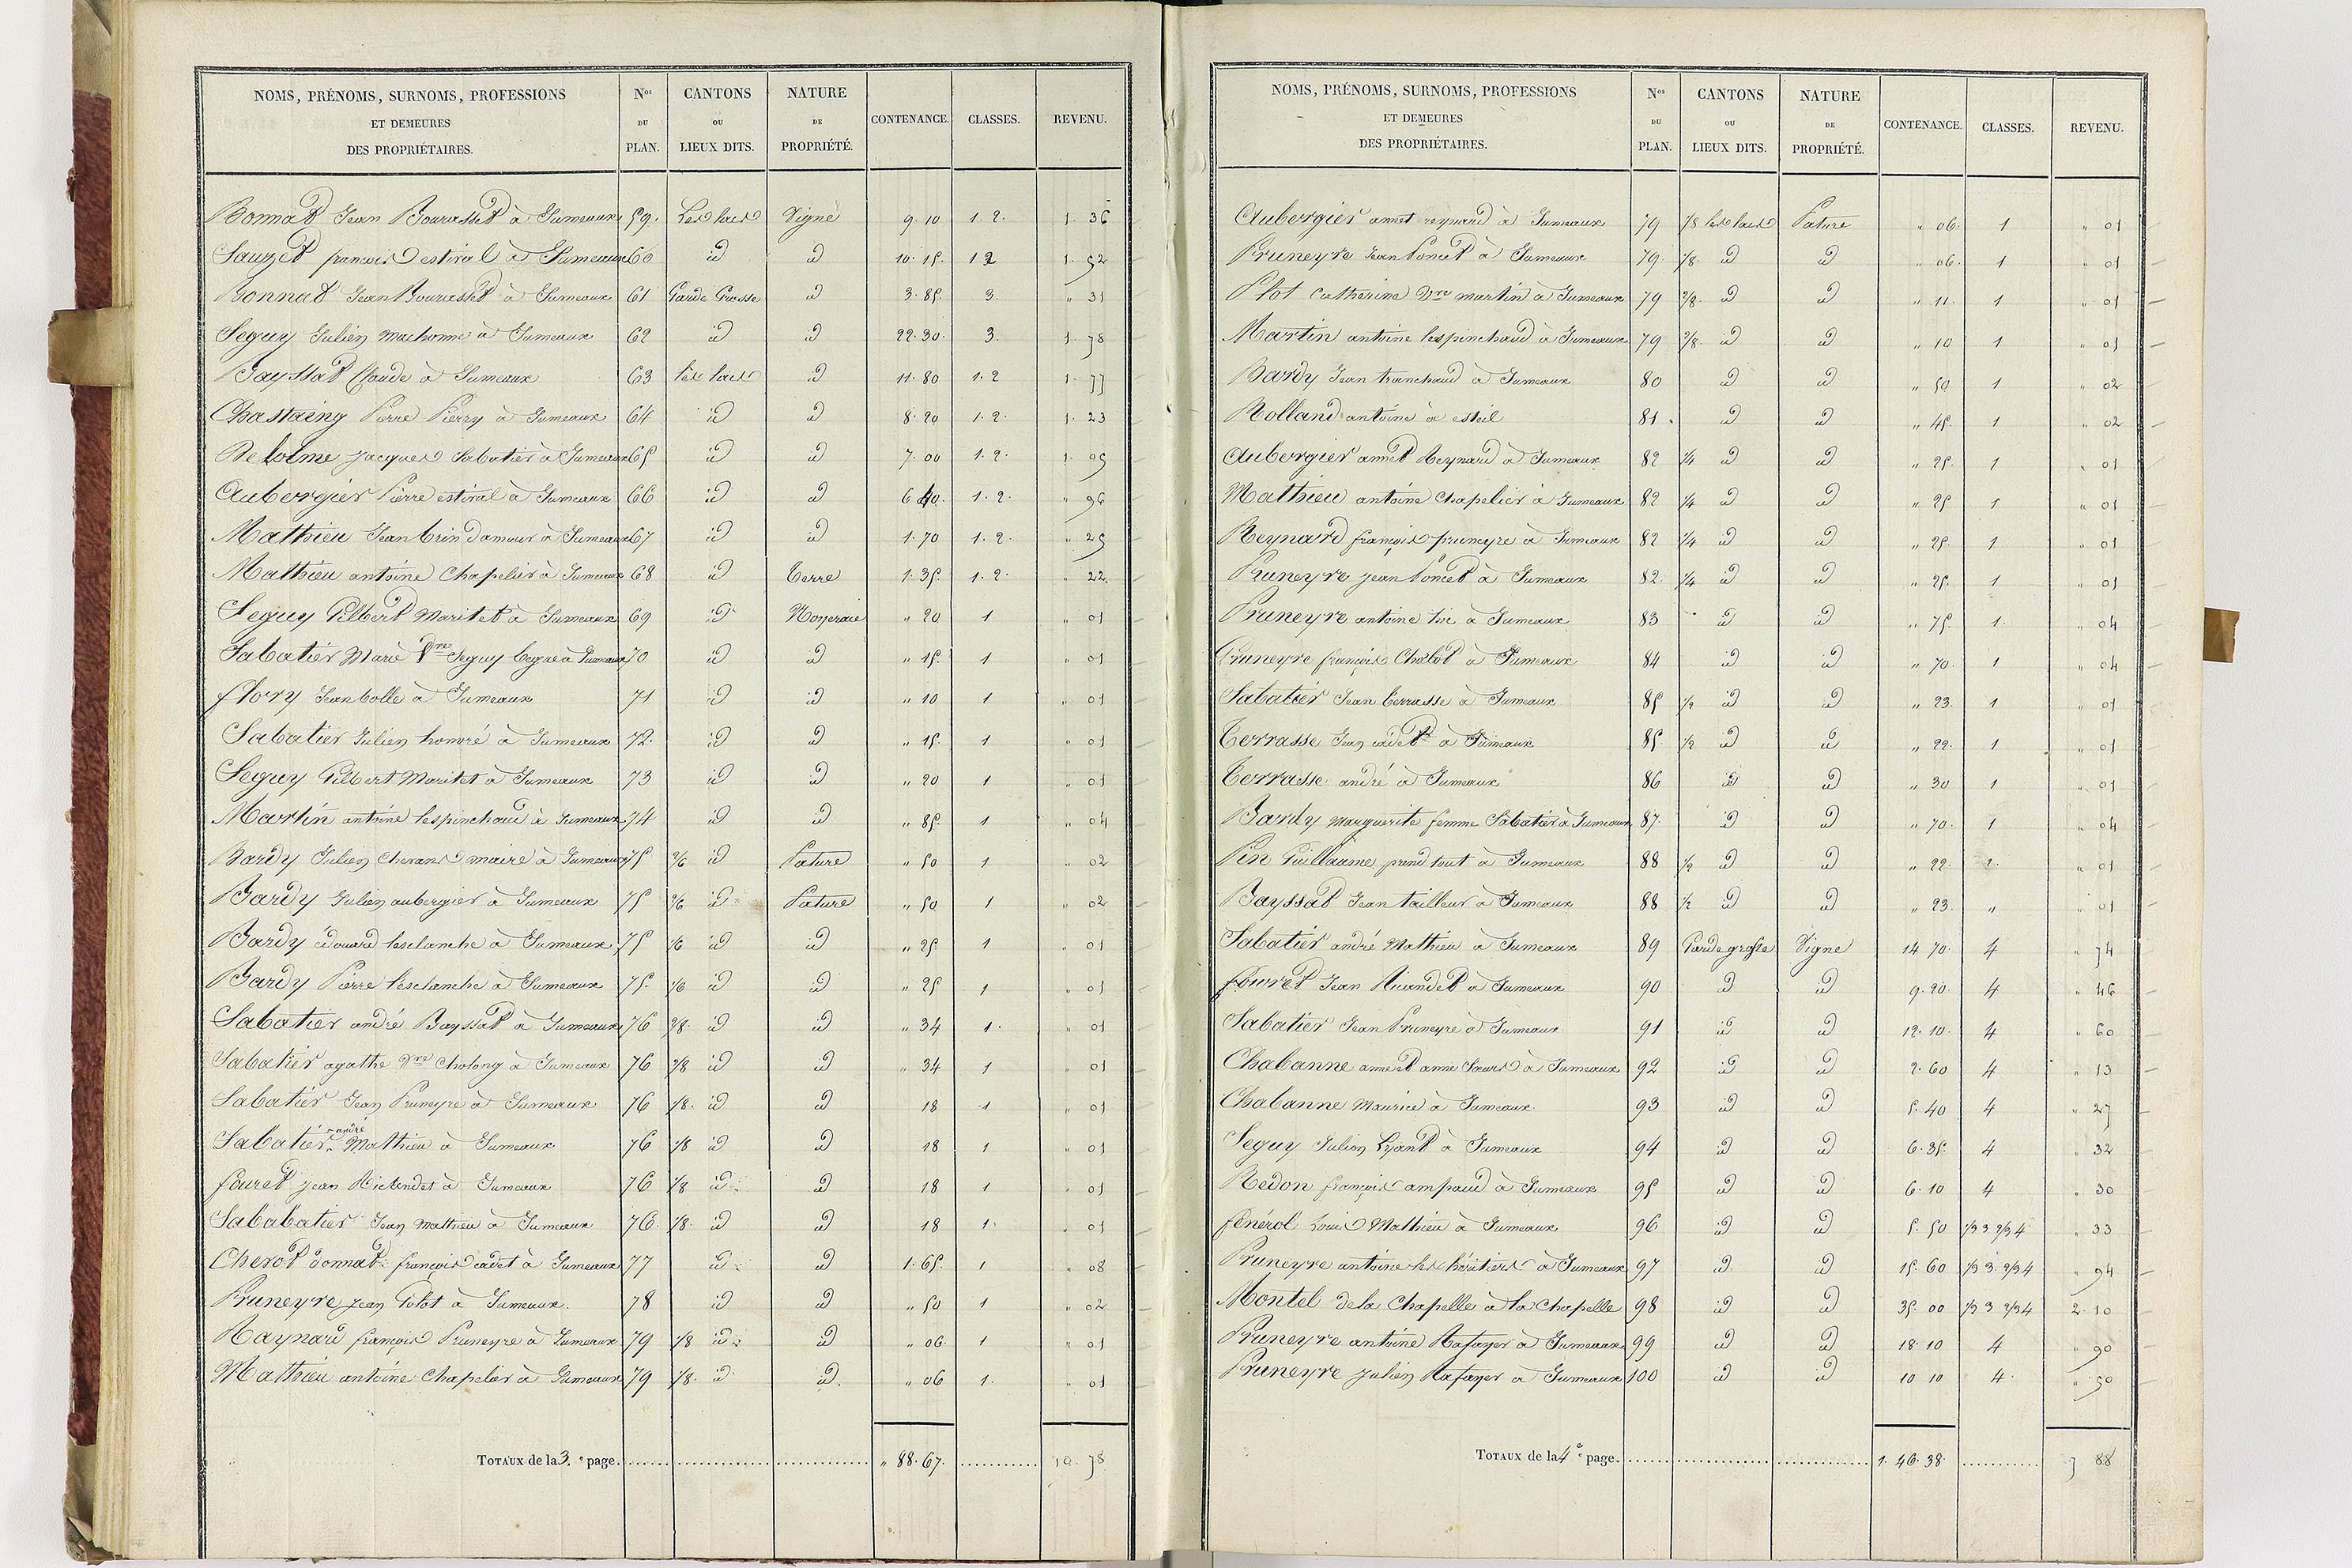 NOMS, PRÉNOMS, SURNOMS, PROFESSIONS ET DEMEURES DES PROPRIÉTAIRES. Nos DU PLAN. CANTONS OU LIEUX DITS. NATURE DE PROPRIÉTÉ. CONTENANCE. CLASSES. REVENU.
Bonnat Jean Bourasset à Jumeaux 59. Les lacs Vigne 9. 10 1. 2. 1. 36
Sauzet francois estival à Jumeaux 60 id id 10. 15. 1 2 1. 52
Bonnat Jean Bourasset à Jumeaux 61 Garde Grosse id 3. 85. 3. " 31
Seguy Julien machonne à Jumeaux 62 id id 22. 30. 3. 1. 78
Bayssat Claude à Jumeaux 63 les lacs id 11. 80 1. 2 1. 77
Chastaing Pierre Pierry à Jumeaux 64 id id 8. 20 1. 2. 1. 23
Delolme Jacques Sabatier à Jumeaux 65 id id 7. 00 1. 2. 1. 05
Aubergier Pierre estival à Jumeaux 66 id id 6 40. 1. 2. " 96
Mathieu Jean brin damour à Jumeaux 67 id id 1. 70 1. 2. " 25
Mathieu antoine Chapelier à Jumeaux 68 id Terre 1. 35. 1. 2. " 22.
Seguy Gilbert Maritet à Jumeaux 69 id Noyeraie " 20 1 " 01
Sabatier Marie Vre Seguy à Jumeaux 70 id id " 15. 1 " 01
flory Jean bolle à Jumeaux 71 id id " 10 1 " 01
Sabatier Julien honoré à Jumeaux 72. id id " 15. 1 " 01
Seguy Gilbert Maritet à Jumeaux 73 id id " 20 1 " 01
Martin antoine lespinchaud à Jumeaux 74 id id " 85. 1 " 04
Bardy Julien maire à Jumeaux 75 2/6 id Pature " 50 1 " 02
Bardy Julien aubergier à Jumeaux 75 2/6 id Pature " 50 1 " 02
Bardy édouard lesclanche à Jumeaux 75 1/6 id id " 25 1 " 01
Bardy Pierre lesclanche à Jumeaux 75. 1/6 id id " 25 1 " 01
Sabatier andré Bayssat à Jumeaux 76 2/8. id id " 34 1. " 01
Sabatier agathe Vre Cholang à Jumeaux 76 2/8 id id " 34 1 " 01
Sabatier Jean Pruneyre à Jumeaux 76 1/8. id id 18 1 " 01
Sabatier andré Mathieu à Jumeaux 76 1/8 id id 18 1 " 01
fouret jean à Jumeaux 76 1/8 id id 18 1 " 01
Sababatier Jean Mathieu à Jumeaux 76. 1/8. id id 18 1. " 01
Cherot bonnat françois cadet à Jumeaux 77 id id 1. 65. 1 " 08
Pruneyre Jean Polot à Jumeaux. 78 id id " 50 1 " 02
Raynard françois Pruneyre à Jumeaux 79 1/8 id id " 06. 1 " 01
Mathieu antoine Chapelier à Jumeaux 79 1/8. id id. " 06 1. " 01
TOTAUX de la 3. e page. " 88. 67. 10. 78
NOMS, PRÉNOMS, SURNOMS, PROFESSIONS ET DEMEURES DES PROPRIÉTAIRES. Nos DU PLAN. CANTONS OU LIEUX DITS. NATURE DE PROPRIÉTÉ. CONTENANCE. CLASSES. REVENU.
Aubergier annet reynard à Jumeaux 79 1/8 les lacs Pature " 06. 1 " 01
Pruneyre Jean Poncet à Jumeaux 79. 1/8. id id " 06. 1 " 01
Plot Catherine Vre martin à Jumeaux 79 2/8. id id " 11. 1 " 01
Martin antoine lespinchaud à Jumeaux 79 2/8. id id " 10 1 " 01
Bardy Jean tranchaud à Jumeaux 80 id id " 50 1 " 02
Rolland antoine à esteil 81. id id " 45. 1 " 02
Aubergier annet Reynard à Jumeaux 82 1/4 id id " 25. 1 " 01
Mathieu antoine Chapelier à Jumeaux 82 1/4 id id " 25 1 " 01
Reynard françois pruneyre à Jumeaux 82 1/4 id id " 25. 1 " 01
Pruneyre Jean Poncet à Jumeaux 82. 1/4 id id " 25. 1 " 01
Pruneyre antoine à Jumeaux 83 id id " 75. 1. " 04
Pruneyre françois Cholot à Jumeaux 84 id id " 70. 1 " 04
Sabatier Jean terrasse à Jumeaux 85 1/2 id id " 23. 1 " 01
Terrasse Jean cadet à Jumeaux 85 1/2 id id " 22. 1 " 01
Terrasse andré à Jumeaux 86 id id " 30 1 " 01
Bardy marguerite femme Sabatier à Jumeaux 87. id id " 70. 1 " 04
Pin Guillaume prend tout à Jumeaux 88 1/2 id id " 22. 2. " 01
Bayssat Jean tailleur à Jumeaux 88 1/2 id id " 23. " " 01
Sabatier andré Mathieu à Jumeaux 89 Garde grosse Vigne 14 70. 4 " 74
fouret Jean à Jumeaux 90 id id 9. 20. 4 " 46
Sabatier Jean Pruneyre à Jumeaux 91 id id 12. 10. 4 " 60
Chabanne anne et anne Sœurs à Jumeaux 92 id id 2. 60 4 " 13
Chabanne Maurice à Jumeaux 93 id id 5. 40 4 " 27
Seguy Julien à Jumeaux 94 id id 6. 35. 4 " 32
Redon françois ampaud à Jumeaux 95 id id 6. 10 4 " 30
fenérol Louis Mathieu à Jumeaux 96 id id 5. 50 1/3 3 2/3 4 " 33
Pruneyre antoine les héritiers à Jumeaux 97 id id 15. 60 1/3 3 2/3 4 " 94
Montel de la Chapelle à la Chapelle 98 id id 35. 00 1/3 3 2/3 4 2. 10
Pruneyre antoine Rafayer à Jumeaux 99 id id 18. 10 4 " 90
Pruneyre Julien Rafayer à Jumeaux 100 id id 10 10 4. " 50
TOTAUX de la 4 e page. 1. 46. 38. 7 88